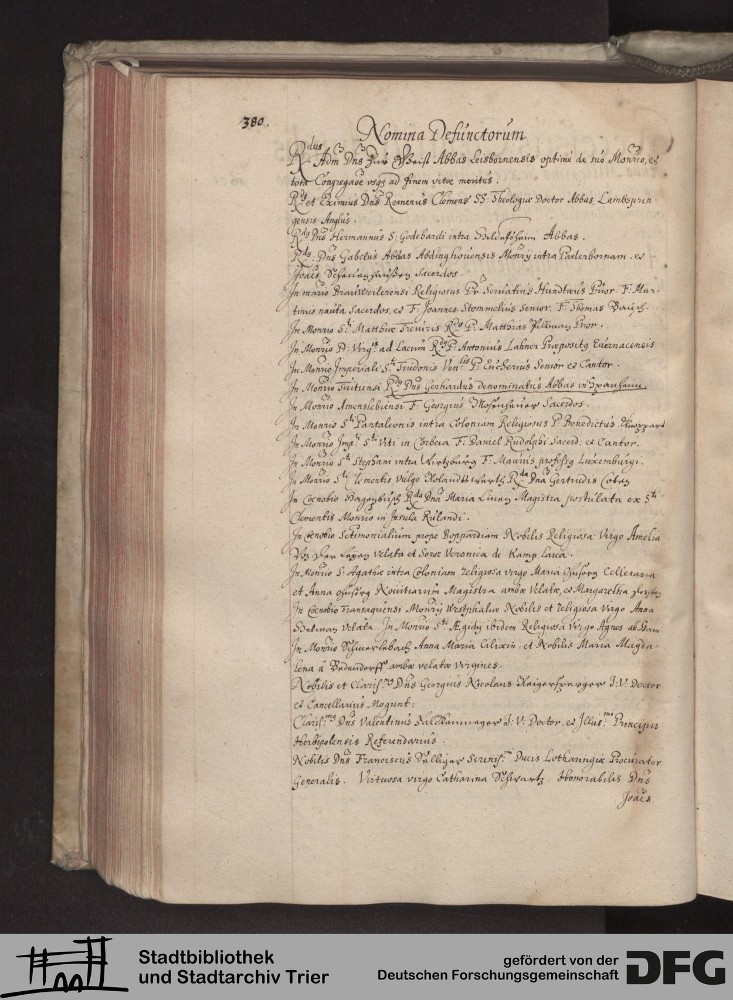 380.
Nomina Defunctorum
Rdus Adm Dns Abbas Leisbornensis optimè de suo Monrio, et
tota Congregaõe usqz ad finem vitæ meritus.
Rds et Eximius Dns Reinerus Clemens SS: Theologiæ Doctor Abbas Lambsprin
gensis Anglus.
Rdus Dns Hermannus S: Godehardi intra Abbas.
Rds: Dns Gabelus Abbas Abdinghovensis Monrÿ intra Paderbornam. et
Joães Sacerdos.
In mnrio Brauweilerensi Religiosus Pr Servatius Hundtæus Prior. F: Mar-
tinus nauta Sacerdos, et F: Joannes Stommelius Senior. F: Thomas
In Monrio Sti Matthiæ Treviris Rds P: Matthias Pillman Prior.
In Monrio B: Virgis ad Lacum Rds P: Antonius Lahner Præpositg Euernacensis
In Monrio Imperiali Sti Trudonis Venlis P: Eucherius Senior et Cantor.
In Monrio Tuitiensi Rds Dns Gerhardus denominatus Abbas in Spanheim
In Monrio Amenslebiensi F: Georgius Sacerdos.
In Monrio Sti Pantaleonis intra Coloniam Religiosus P. Benedictus Knippart
In Monrio Impli Sti Viti in Corbeia F: Daniel Rudolphi Sacerd: et Cantor.
In Monrio Sti Stephani intra Wirtzburg F: Maurus professg Luxemburgi.
In Monrio Sti Clementis vulgo Rda Dna Gertrudis
In Coenobio Rda Dna Maria Linen Magistra postulata ex Sti
Clementis Monrio in Insula Rulandi.
In coenobio Sctimonialium prope Boppardiam Nobilis Religiosa Virgo Amelia
Von der Leyen velata et Soror Veronica de Kamp Laica.
In Monrio S: Agathæ intra Coloniam religiosa virgo Maria Celleraria
et Anna Novitiarum Magistra ambæ Velatæ, et Margaretha
In Coenobio Monrÿ Westphaliæ Nobilis et religiosa Virgo Anna
velata. In Monrio Sti Ægidÿ ibidem Religiosa Virgo Agnes
In Monrio Anna Maria Cilixin, et Nobilis Maria Magda-
lena à ambæ velatæ virgines.
Nobilis et Clarissmg Dns Georgius Nicolaus J: V: Doctor
et Cancellarius Mogunt:
Clarissmg Dns Valentinus J: V: Doctor, et Illusmi Principis
Herbipolensis Referendarius.
Nobilis Dns Franciscus Serenissm Ducis Lotharingiæ Procurator
Generalis. Virtuosa virgo Catharina Schwartz. Honorabilis Dns
Joães
Stadtbibliothek
und Stadtarchiv Trier
gefördert von der
Deutschen Forschungsgemeinschaft
DFG